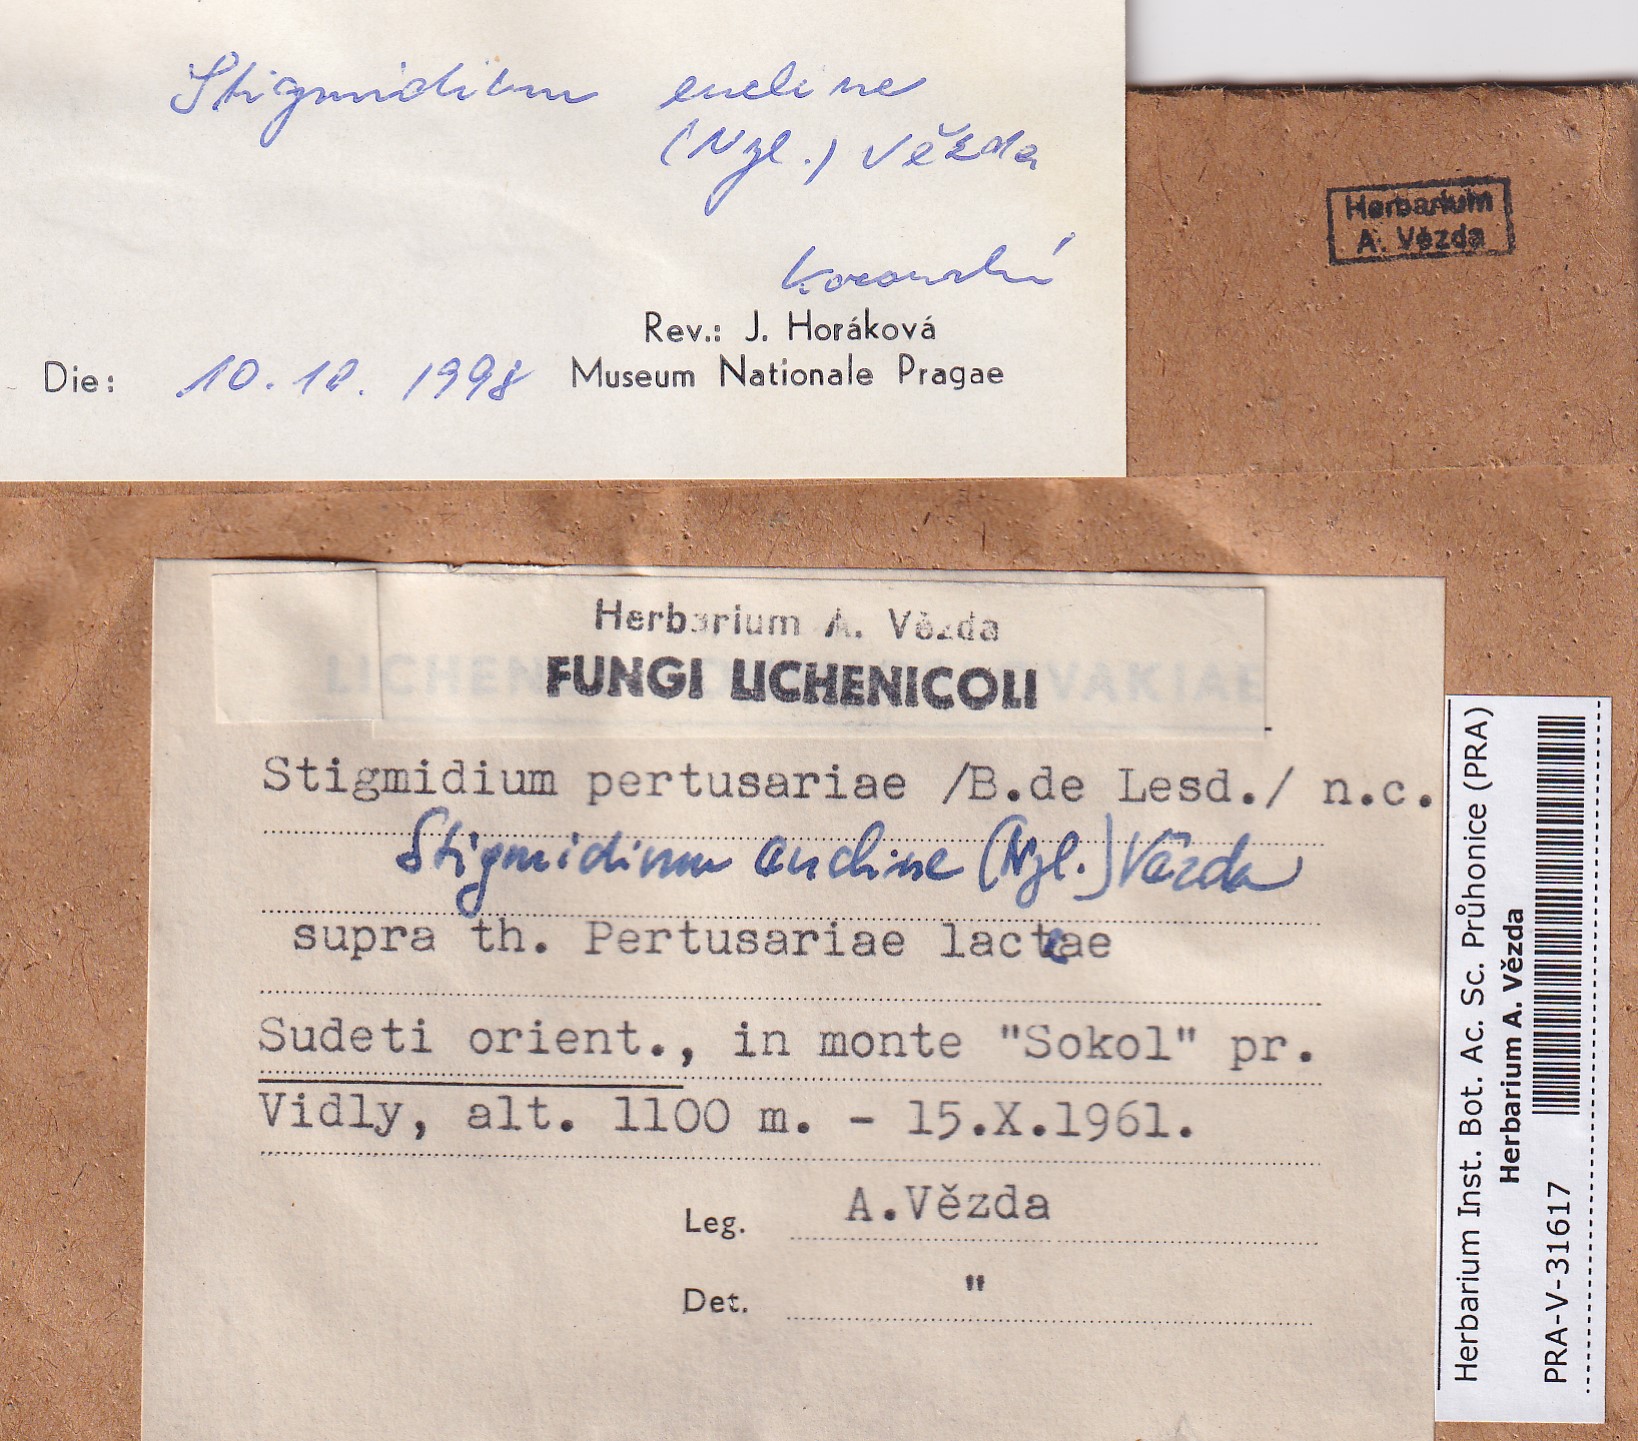 Stigmidium eucline
(Nyl.) Vězda
Kocourková
Rev.: J. Horáková
Die: 10. 10. 1998 Museum Nationale Pragae
Herbarium
A. Vězda
Herbarium A. Vězda
FUNGI LICHENICOLI
Stigmidium pertusariae /B.de Lesd./ n.c.
Stigmidium eucline (Nyl.) Vězda
supra th. Pertusariae lacteae
Sudeti orient., in monte "Sokol" pr.
Vidly, alt. 1100 m. - 15.X.1961.
Leg. A.Vězda
Det. "
Herbarium Inst. Bot. Ac. Sc. Průhonice (PRA)
Herbarium A. Vězda
PRA-V-31617